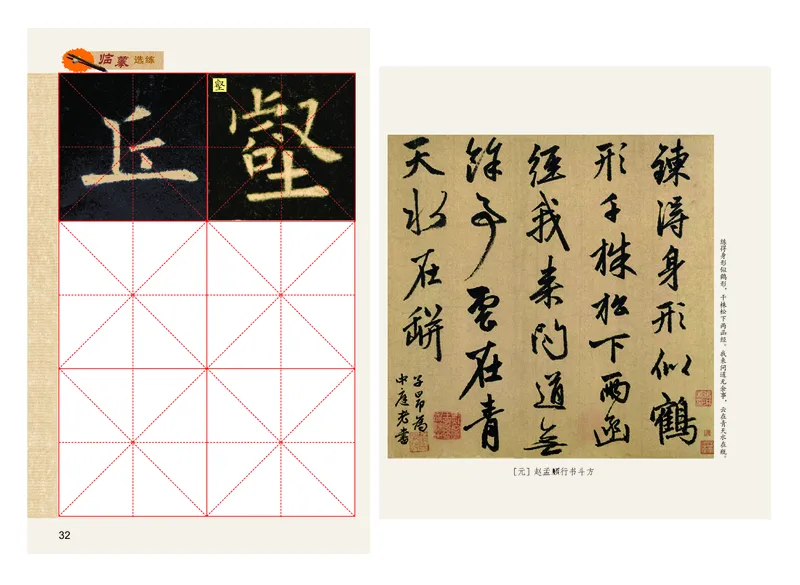 临摹 选练
丘 壑
壑
32
鍊得身形似鶴
形千株松下兩函
經我来问道無
餘事雲在青
天水在缾
子昂為
中庭老書
练得身形似鹤形，千株松下两函经。我来问道无余事，云在青天水在瓶。
［元］赵孟頫行书斗方